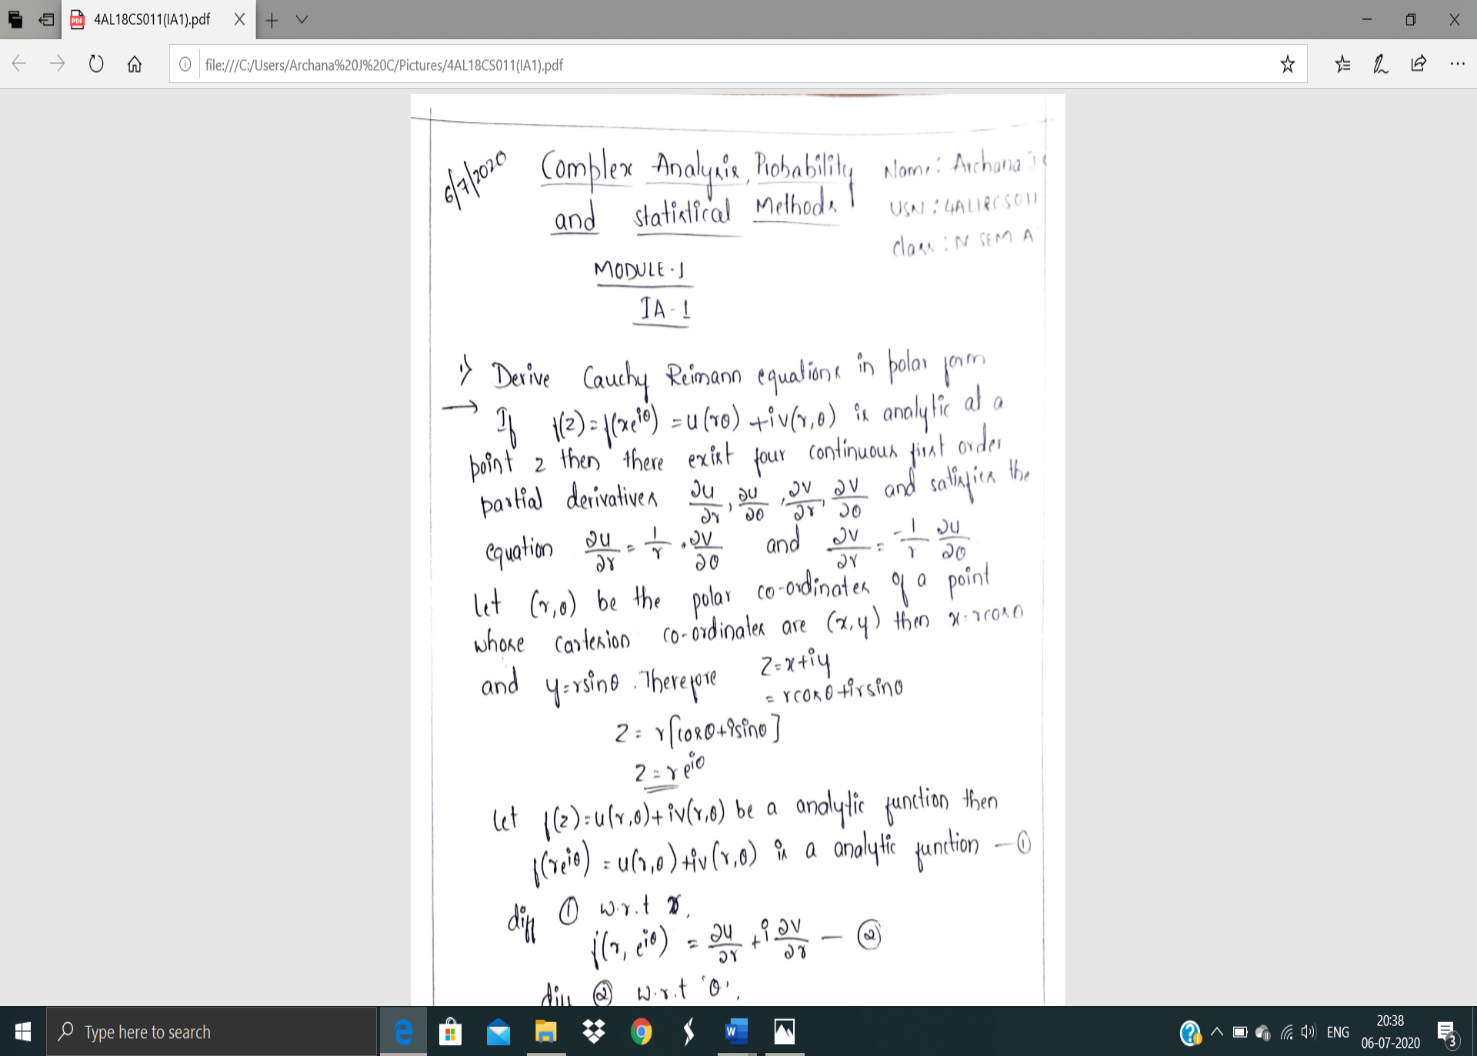 4AL18CS011(IA1).pdf
file:///C:/Users/Archana%20J%20C/Pictures/4AL18CS011(IA1).pdf
6/7/2020
Complex Analysis, Probability
and statistical Methods
Name: Archana J C
USN: 4AL18CS011
class: IV SEM A
MODULE-1
IA-1
1) Derive Cauchy Reimann equations in polar form
→ If f(z)=f(re^iθ) = u(rθ) +iv(r,θ) is analytic at a
point z then there exist four continuous first order
partial derivatives ∂u/∂r, ∂u/∂θ, ∂v/∂r, ∂v/∂θ and satisfies the
equation ∂u/∂r = 1/r . ∂v/∂θ and ∂v/∂r = -1/r ∂u/∂θ
Let (r,θ) be the polar co-ordinates of a point
whose cartesion co-ordinates are (x,y) then x=rcosθ
and y=rsinθ. Therefore z=x+iy
= rcosθ+irsinθ
z = r[cosθ+isinθ]
z=re^iθ
Let f(z)=u(r,θ)+iv(r,θ) be a analytic function then
f(re^iθ) = u(r,θ)+iv(r,θ) is a analytic function —①
diff ① w.r.t r,
f'(r, e^iθ) = ∂u/∂r + i ∂v/∂r — ②
diff ② w.r.t 'θ',
Type here to search
ENG
20:38
06-07-2020
3